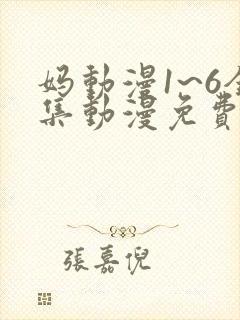 妈動漫1~6全
集動漫免費
張嘉倪